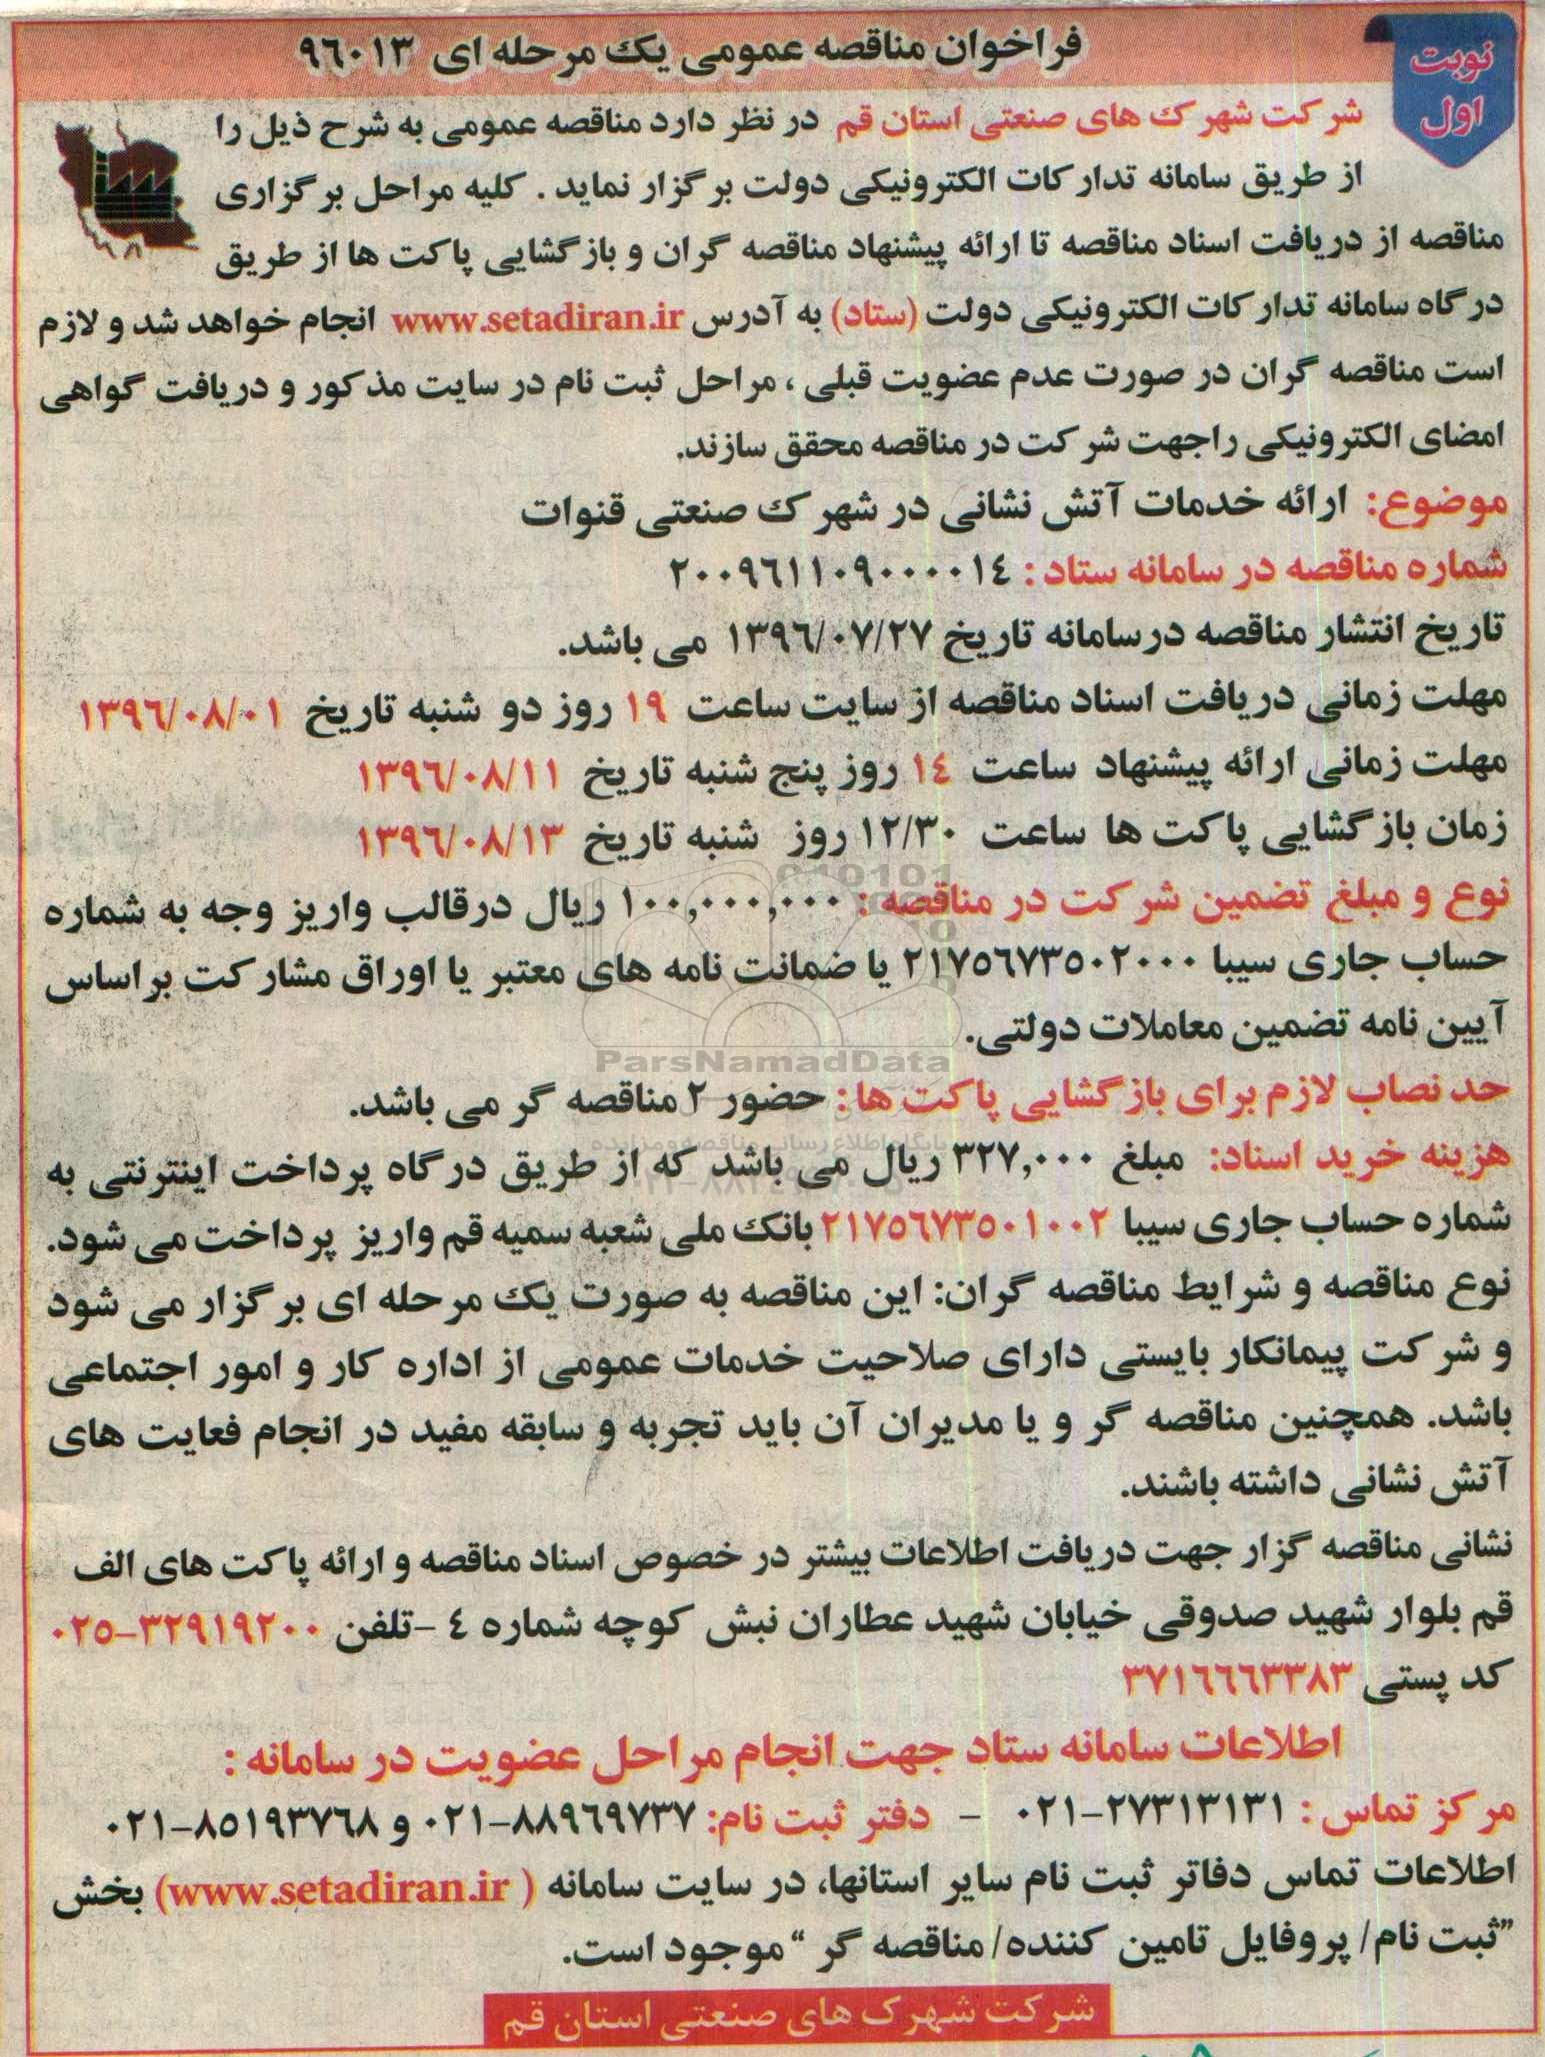 نوبت
اول
فراخوان مناقصه عمومی یک مرحله ای ۹۶۰۱۳
شرکت شهرک های صنعتی استان قم در نظر دارد مناقصه عمومی به شرح ذیل را
از طریق سامانه تدارکات الکترونیکی دولت برگزار نماید . کلیه مراحل برگزاری
مناقصه از دریافت اسناد مناقصه تا ارائه پیشنهاد مناقصه گران و بازگشایی پاکت ها از طریق
درگاه سامانه تدارکات الکترونیکی دولت (ستاد) به آدرس www.setadiran.ir انجام خواهد شد و لازم
است مناقصه گران در صورت عدم عضویت قبلی ، مراحل ثبت نام در سایت مذکور و دریافت گواهی
امضای الکترونیکی راجهت شرکت در مناقصه محقق سازند.
موضوع: ارائه خدمات آتش نشانی در شهرک صنعتی قنوات
شماره مناقصه در سامانه ستاد : ۲۰۰۹۶۱۱۰۹۰۰۰۰۱۴
تاریخ انتشار مناقصه درسامانه تاریخ ۱۳۹۶/۰۷/۲۷ می باشد.
مهلت زمانی دریافت اسناد مناقصه از سایت ساعت ۱۹ روز دو شنبه تاریخ ۱۳۹۶/۰۸/۰۱
مهلت زمانی ارائه پیشنهاد ساعت ۱۴ روز پنج شنبه تاریخ ۱۳۹۶/۰۸/۱۱
زمان بازگشایی پاکت ها ساعت ۱۲/۳۰ روز شنبه تاریخ ۱۳۹۶/۰۸/۱۳
نوع و مبلغ تضمین شرکت در مناقصه : ۱۰۰,۰۰۰,۰۰۰ ریال درقالب واریز وجه به شماره
حساب جاری سیبا ۲۱۷۵۶۷۳۵۰۲۰۰۰ یا ضمانت نامه های معتبر یا اوراق مشارکت براساس
آیین نامه تضمین معاملات دولتی.
ParsNamadData
حد نصاب لازم برای بازگشایی پاکت ها: حضور ۲ مناقصه گر می باشد.
پایگاه اطلاع رسانی مناقصه و مزایده
هزینه خرید اسناد: مبلغ ۳۲۷,۰۰۰ ریال می باشد که از طریق درگاه پرداخت اینترنتی به
شماره حساب جاری سیبا ۲۱۷۵۶۷۳۵۰۱۰۰۲ بانک ملی شعبه سمیه قم واریز پرداخت می شود.
نوع مناقصه و شرایط مناقصه گران: این مناقصه به صورت یک مرحله ای برگزار می شود
و شرکت پیمانکار بایستی دارای صلاحیت خدمات عمومی از اداره کار و امور اجتماعی
باشد. همچنین مناقصه گر و یا مدیران آن باید تجربه و سابقه مفید در انجام فعایت های
آتش نشانی داشته باشند.
نشانی مناقصه گزار جهت دریافت اطلاعات بیشتر در خصوص اسناد مناقصه و ارائه پاکت های الف
قم بلوار شهید صدوقی خیابان شهید عطاران نبش کوچه شماره ۴ -تلفن ۰۲۵-۳۲۹۱۹۲۰۰
کد پستی ۳۷۱۶۶۶۳۳۸۳
اطلاعات سامانه ستاد جهت انجام مراحل عضویت در سامانه :
مرکز تماس : ۰۲۱-۲۷۳۱۳۱۳۱ - دفتر ثبت نام: ۰۲۱-۸۸۹۶۹۷۳۷ و ۰۲۱-۸۵۱۹۳۷۶۸
اطلاعات تماس دفاتر ثبت نام سایر استانها، در سایت سامانه ( www.setadiran.ir) بخش
”ثبت نام/ پروفایل تامین کننده/ مناقصه گر “ موجود است.
شرکت شهرک های صنعتی استان قم